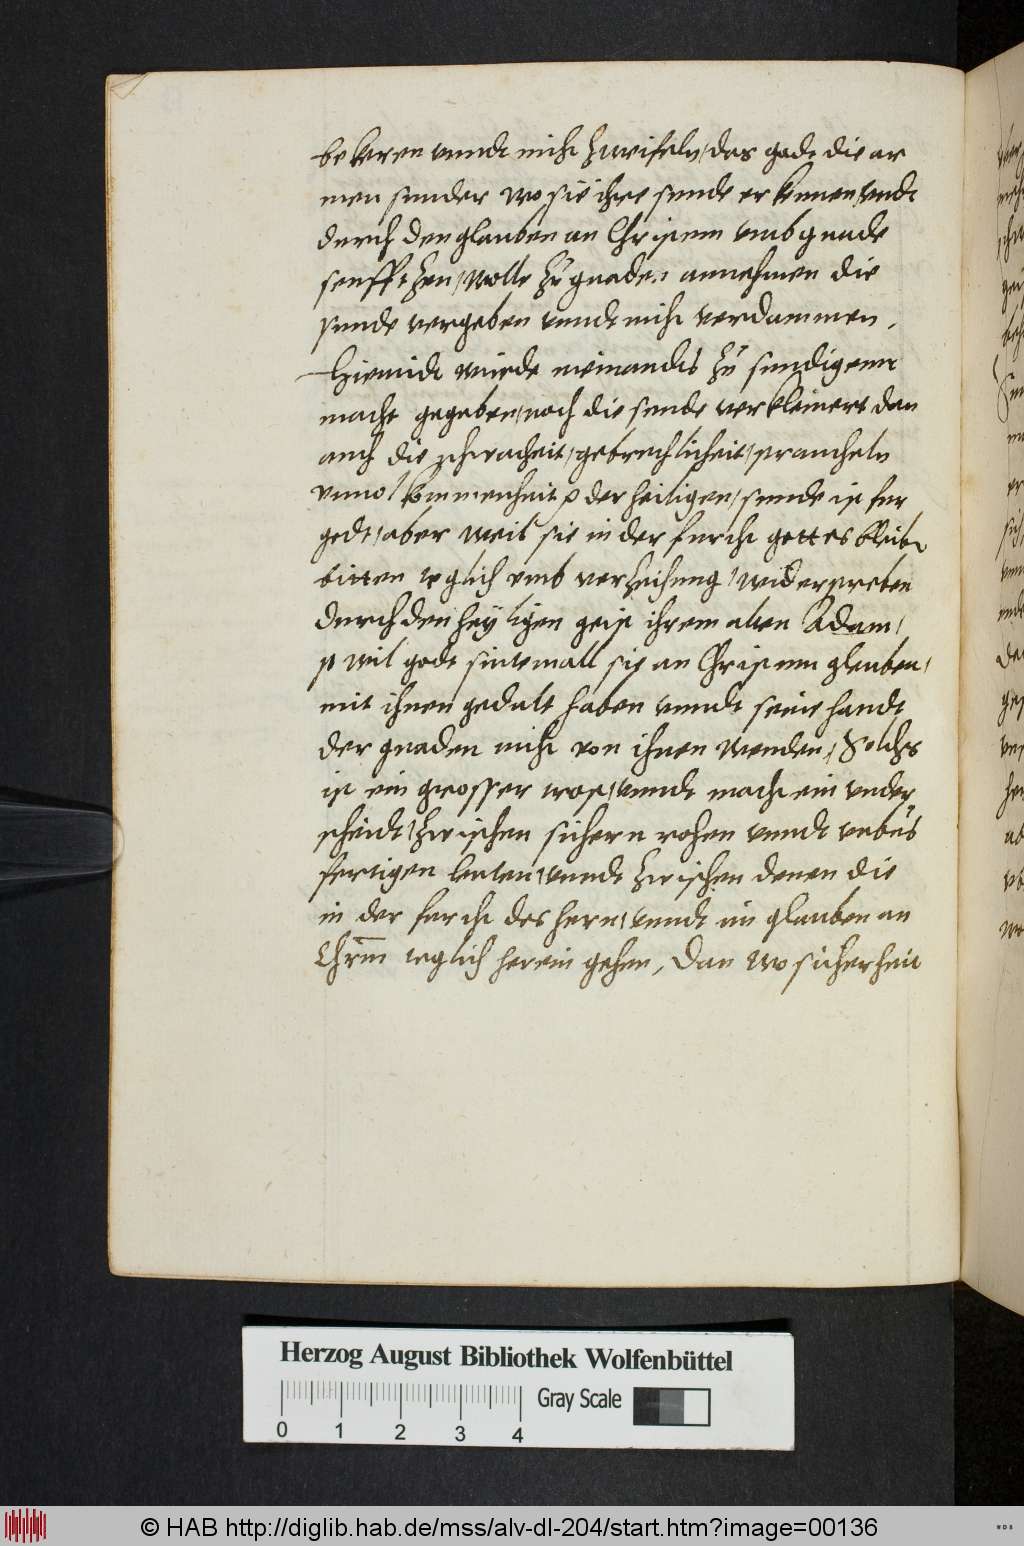 bekeren vnnd nicht zweifeln, das gode die ar
men sunder wo sie ihre sunde erkennen, vnd
durch den glauben an Christum vmb gnade
seufftzen, wolle zu gnaden annehmen die
sunde vergeben vnnd nicht verdammen.
Hiemidt würde niemandts zu sundigenn
macht gegeben, noch die sunde verkleinert dan
auch die schwacheit, gebrechlicheit, straucheln
vnnol kommenheit der heiligen, sunde ist fur
godt, aber weil sie in der furcht gottes bleiben
bitten teglich vmb verzeihung, widerstreben
durch den heyligen geist ihrem alten Adam,
so wil godt sintemall sie an Christum gleuben,
mit ihnen gedult haben vnndt seine handt
der gnaden nicht von ihnen wenden, Solchs
ist ein grosser trost, vnndt macht ein vnder
scheidt, zwischen sichern rohen vnndt vnbus
fertigen leuten, vnndt zwischen denen die
in der furcht des hern, vnndt im glauben an
Chrm teglich herein gehen, Dan wo sicherheit
Herzog August Bibliothek Wolfenbüttel
0 1 2 3 4
Gray Scale
© HAB http://diglib.hab.de/mss/alv-dl-204/start.htm?image=00136